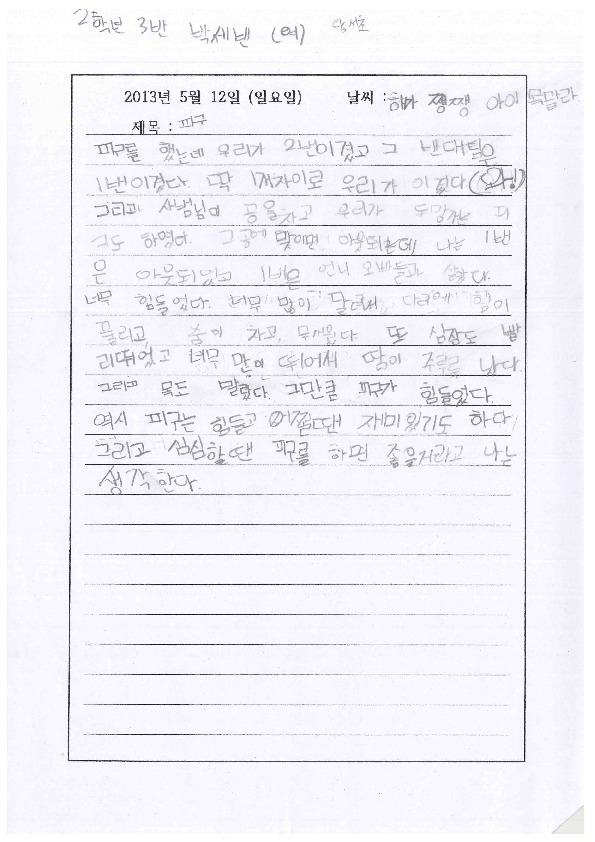 2학년 3반 박세빈 (여) 당서초
2013년 5월 12일 (일요일) 날씨 : 해가 쨍쨍 아이 목말라
제목 : 피구
피구를 했는데 우리가 2번이겼고 그
1번이겼다. 딱 1개차이로 우리가 이겼다
그리고 사범님이 공을차고 우리가 도망가는 피
구도 하였다. 그공에 맞이면 아웃되는데 나는 1번
은 아웃되었고 1번은 언니 오빠들과 살았다.
너무 힘들었다. 너무 많이 달려서 다리에 힘이
풀리고, 숨이 차고, 무서웠다 또 심장도 빨
리뛰었고 너무 많이 뛰어서 땀이 주루룩 났다.
그리고 목도 말랐다. 그만큼 피구가 힘들었다.
역시 피구는 힘들고 어쩔땐 재미있기도 하다
그리고 심심할땐 피구를 하면 좋을거라고 나는
생각한다.